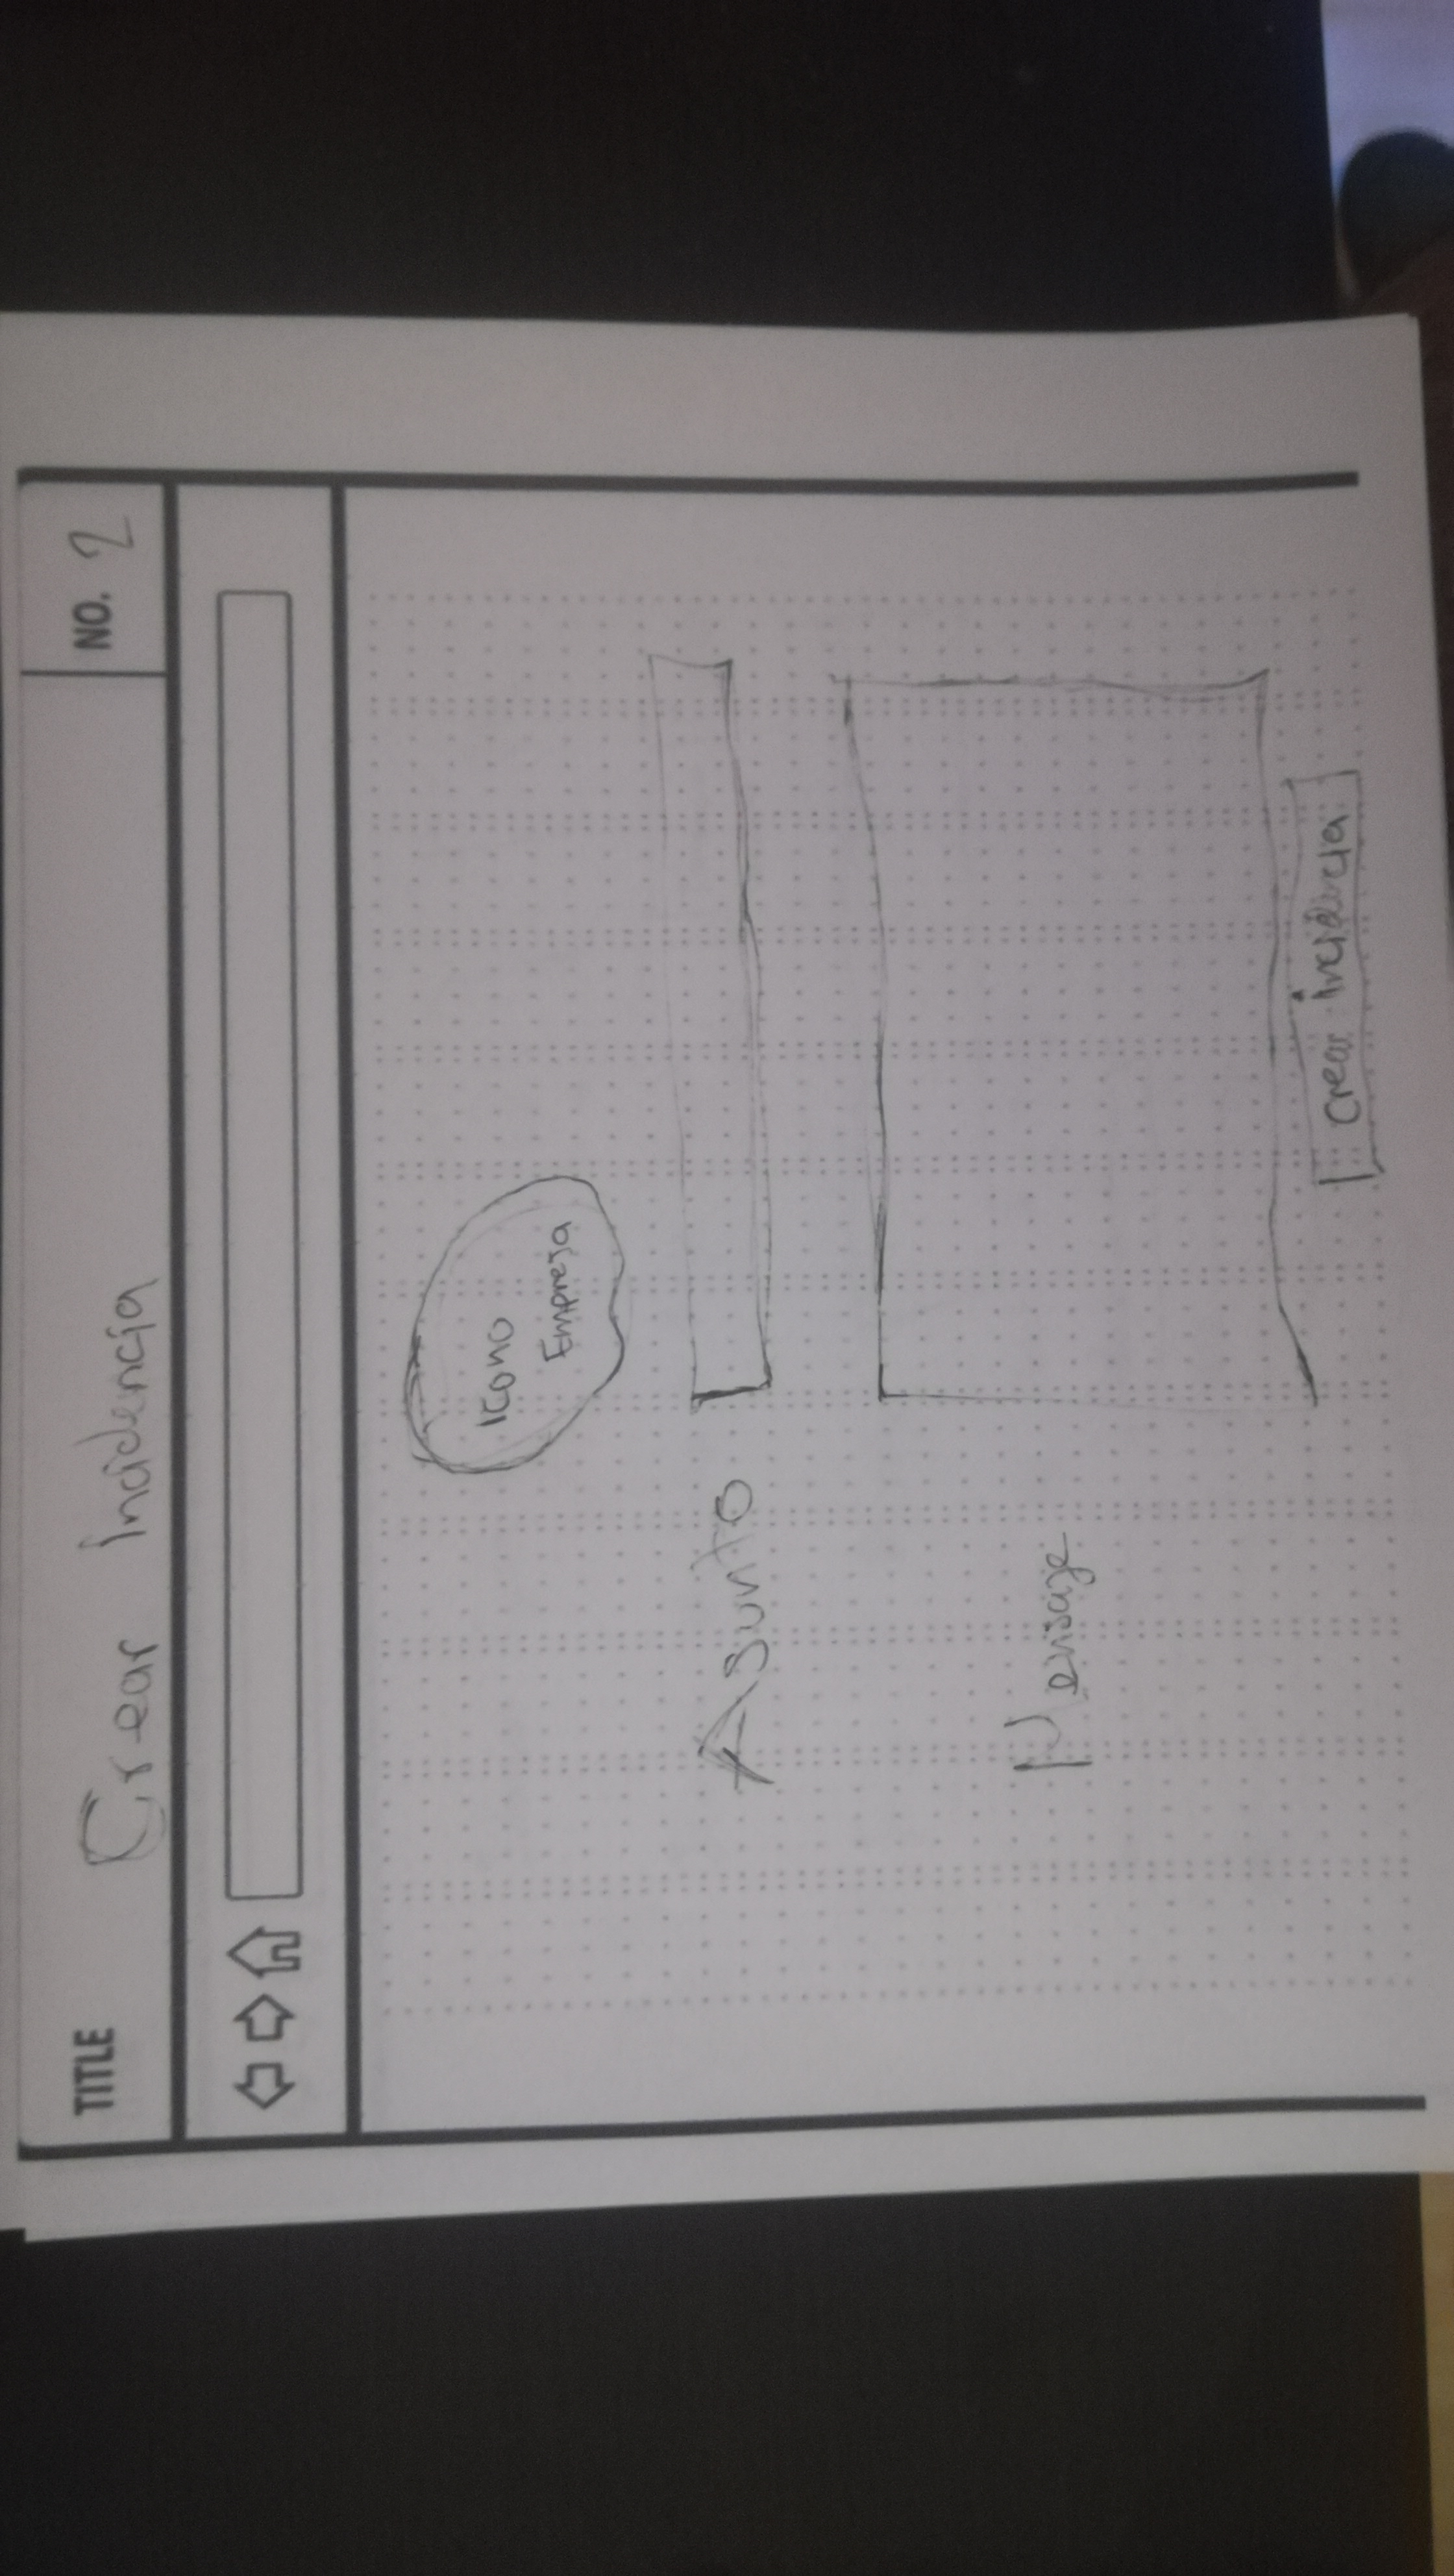 TITLE Crear Incidencia NO. 2
Icono
Empresa
Asunto
Mensaje
Crear incidencia